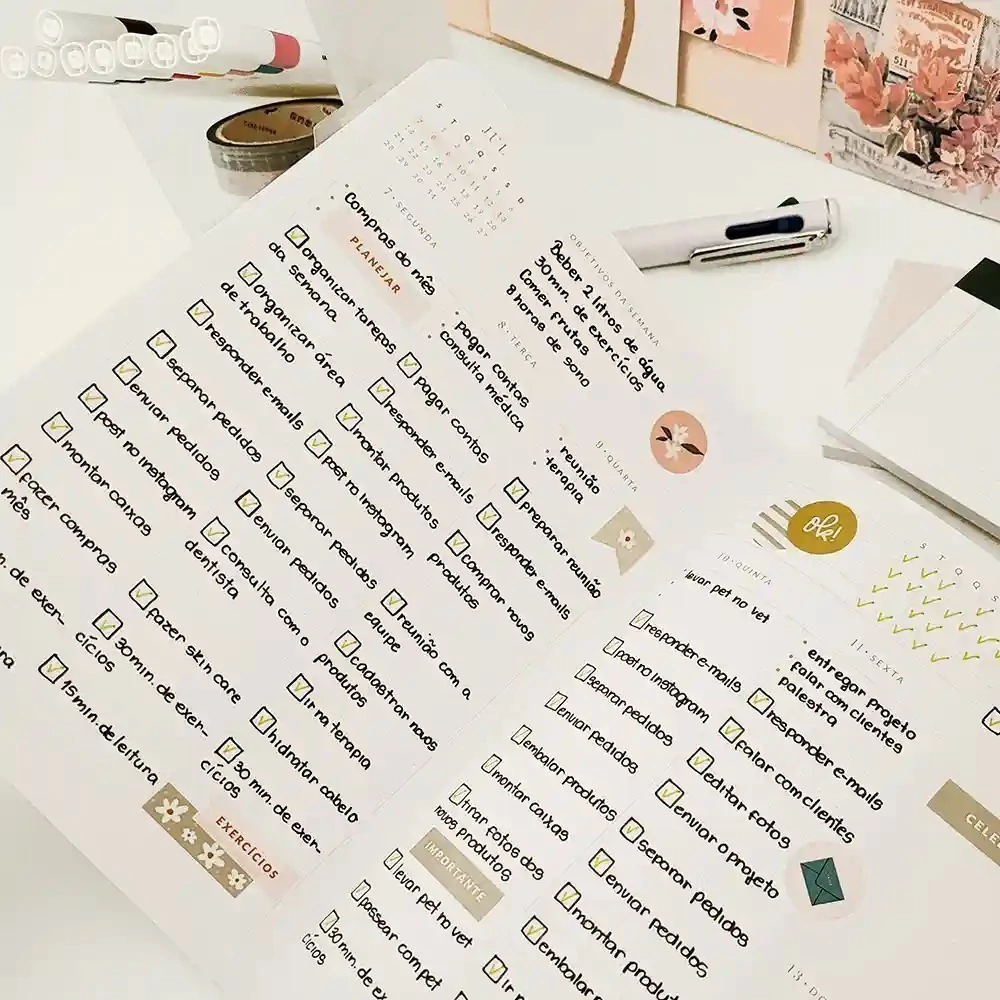 JUL
S T Q Q S S D
OBJETIVOS DA SEMANA
Beber 2 litros de água
30 min. de exercícios
Comer frutas
8 horas de sono
7 · SEGUNDA
Compras do mês
PLANEJAR
organizar tarefas
da semana
organizar área
de trabalho
responder e-mails
separar pedidos
enviar pedidos
post no instagram
montar caixas
fazer compras
mês
de exer-
cícios
8 · TERÇA
pagar contas
consulta médica
pagar contas
responder e-mails
montar produtos
post no instagram
separar pedidos
enviar pedidos
consulta com o
dentista
fazer skin care
30 min. de exer-
cícios
15 min. de leitura
9 · QUARTA
reunião
terapia
preparar reunião
responder e-mails
comprar novos
produtos
reunião com a
equipe
cadastrar novos
produtos
ir na terapia
hidratar cabelo
30 min. de exer-
cícios
EXERCÍCIOS
ok!
S T Q Q S
10 · QUINTA
levar pet no vet
responder e-mails
post no instagram
separar pedidos
enviar pedidos
embalar produtos
montar caixas
tirar fotos dos
novos produtos
IMPORTANTE
levar pet no vet
passear com pet
30 min. de ex
cícios
11 · SEXTA
entregar projeto
falar com clientes
palestra
responder e-mails
falar com clientes
editar fotos
enviar o projeto
separar pedidos
enviar pedidos
montar produt
embalar
ir
CELE
13 · D
LEVI STRAUSS & CO.
511